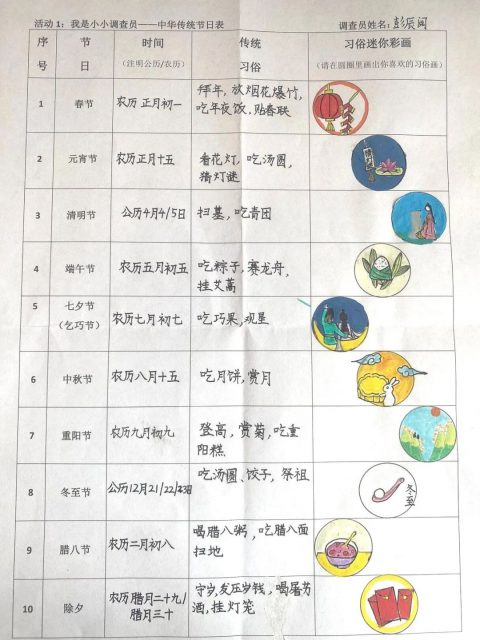 活动1：我是小小调查员——中华传统节日表 调查员姓名：
序号 节日 时间（注明公历/农历） 传统习俗 习俗迷你彩画（请在圆圈里画出你喜欢的习俗画）
1 春节 农历 正月初一 拜年，放烟花爆竹，
吃年夜饭，贴春联
2 元宵节 农历正月十五 看花灯，吃汤圆，
猜灯谜
3 清明节 公历4月4/5日 扫墓，吃青团
4 端午节 农历五月初五 吃粽子，赛龙舟，
挂艾蒿
5 七夕节
（乞巧节） 农历七月初七 吃巧果，观星
6 中秋节 农历八月十五 吃月饼，赏月
7 重阳节 农历九月初九 登高，赏菊，吃重
阳糕
8 冬至节 公历12月21/22/23日 吃汤圆、饺子，祭祖
冬至
9 腊八节 农历二月初八 喝腊八粥，吃腊八面
扫地
10 除夕 农历腊月二十九/
腊月三十 守岁，发压岁钱，喝屠苏
酒，挂灯笼